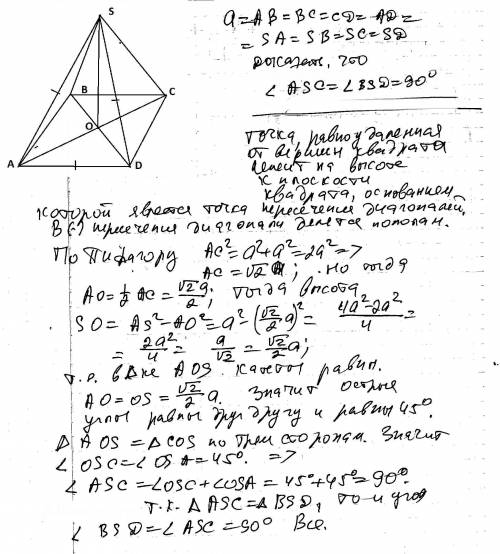 S
B
C
O
A
D
a = AB = BC = CD = AD =
= SA = SB = SC = SD
доказать, что
∠ ASC = ∠ BSD = 90°
точка равноудаленная
от вершин квадрата
лежит на высоте
к плоскости
квадрата, основанием
которой является точка пересечения диагоналей.
В (·) пересечения диагонали делятся пополам.
По Пифагору AC² = a² + a² = 2a² =>
AC = √2 a; но тогда
AO = 1/2 AC = √2a/2; тогда высота
SO = AS² - AO² = a² - (√2/2 a)² = 4a² - 2a²/4 =
= 2a²/4 = a/√2 = √2/2 a;
т.е. в Δке AOS катеты равны.
AO = OS = √2/2 a. Значит острые
углы равны друг другу и равны 45°.
Δ AOS = Δ COS по трем сторонам. Значит
∠ OSC = ∠ OSA = 45°. =>
∠ ASC = ∠OSC + ∠OSA = 45° + 45° = 90°.
т.к. Δ ASC = Δ BSD, то и угол
∠ BSD = ∠ ASC = 90° Все.